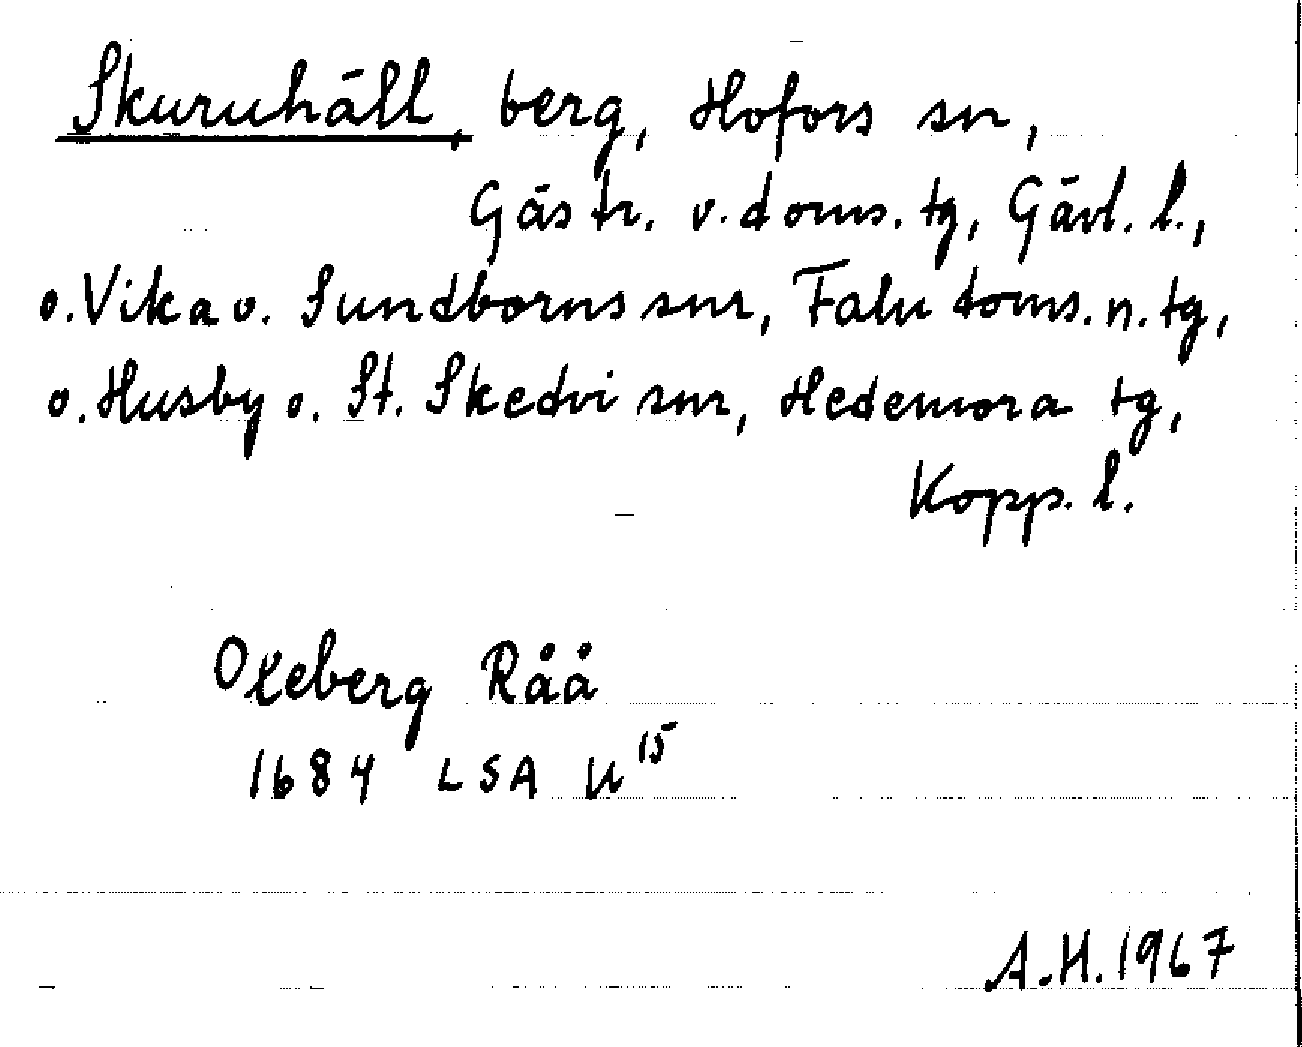 Skuruhäll, berg, Hofors sn,
Gästr. v. doms. tg, Gävl. l.,
o. Vika o. Sundborns snr, Falu doms. n. tg,
o. Husby o. St. Skedvi snr, Hedemora tg,
Kopp. l.
Oxeberg Råå
1684 LSA U¹⁵
A.H. 1967